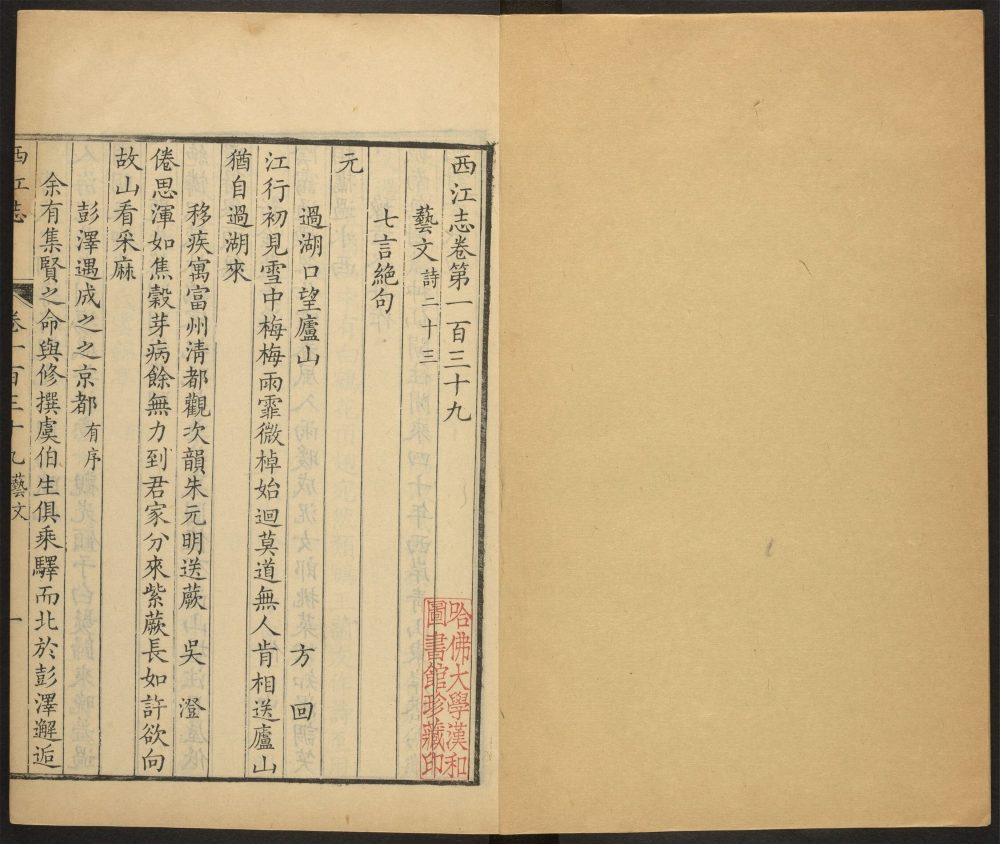 西江志卷第一百三十九
藝文 詩二十三
七言絶句
元
過湖口望廬山 方回
江行初見雪中梅梅雨霏微棹始迴莫道無人肯相送廬山
猶自過湖來
移疾寓富州清都觀次韻朱元明送蕨 吳澄
倦思渾如焦穀芽病餘無力到君家分來紫蕨長如許欲向
故山看采麻
彭澤遇成之之京都 有序
余有集賢之命與修撰虞伯生俱乘驛而北於彭澤邂逅
西江志 卷一百三十九 藝文 一
哈佛大學漢和
圖書館珍藏印